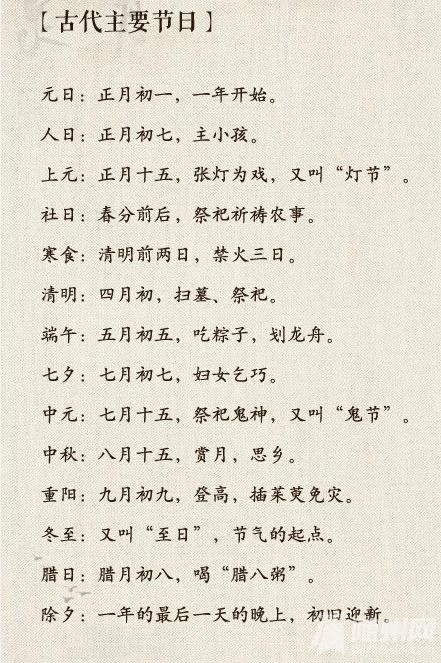 【古代主要节日】
元日：正月初一，一年开始。
人日：正月初七，主小孩。
上元：正月十五，张灯为戏，又叫“灯节”。
社日：春分前后，祭祀祈祷农事。
寒食：清明前两日，禁火三日。
清明：四月初，扫墓、祭祀。
端午：五月初五，吃粽子，划龙舟。
七夕：七月初七，妇女乞巧。
中元：七月十五，祭祀鬼神，又叫“鬼节”。
中秋：八月十五，赏月，思乡。
重阳：九月初九，登高，插茱萸免灾。
冬至：又叫“至日”，节气的起点。
腊日：腊月初八，喝“腊八粥”。
除夕：一年的最后一天的晚上，初旧迎新。